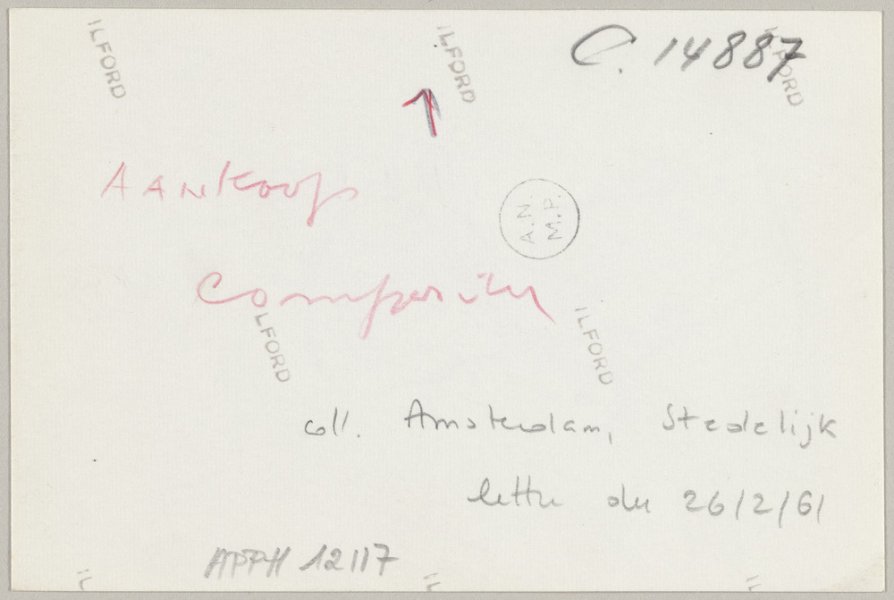 ILFORD ILFORD ILFORD
C. 14887
Aankoop
A.N.
M.P.
Composition
ILFORD ILFORD
coll. Amsterdam, Stedelijk
lettre du 26/2/61
APPH 12117
IL IL IL